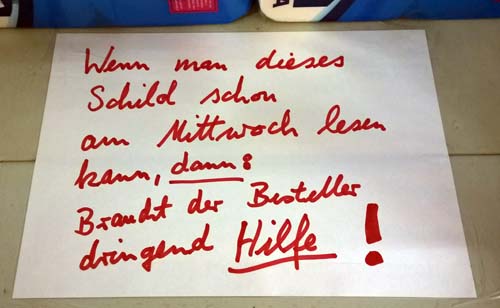 Wenn man dieses
Schild schon
am Mittwoch lesen
kann, dann:
Braucht der Besteller
dringend Hilfe !